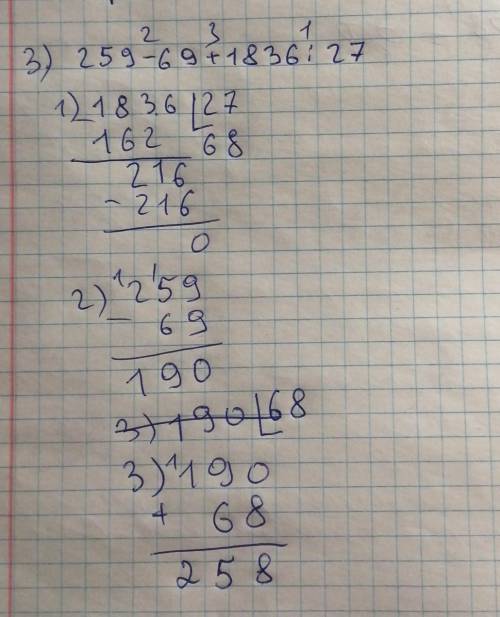 2 3 1
3) 259-69+1836:27
1) -1836 27
162 68
216
-216
0
1 1
2) 259
- 69
190
3) 190 68
3) 1 190
+ 68
258